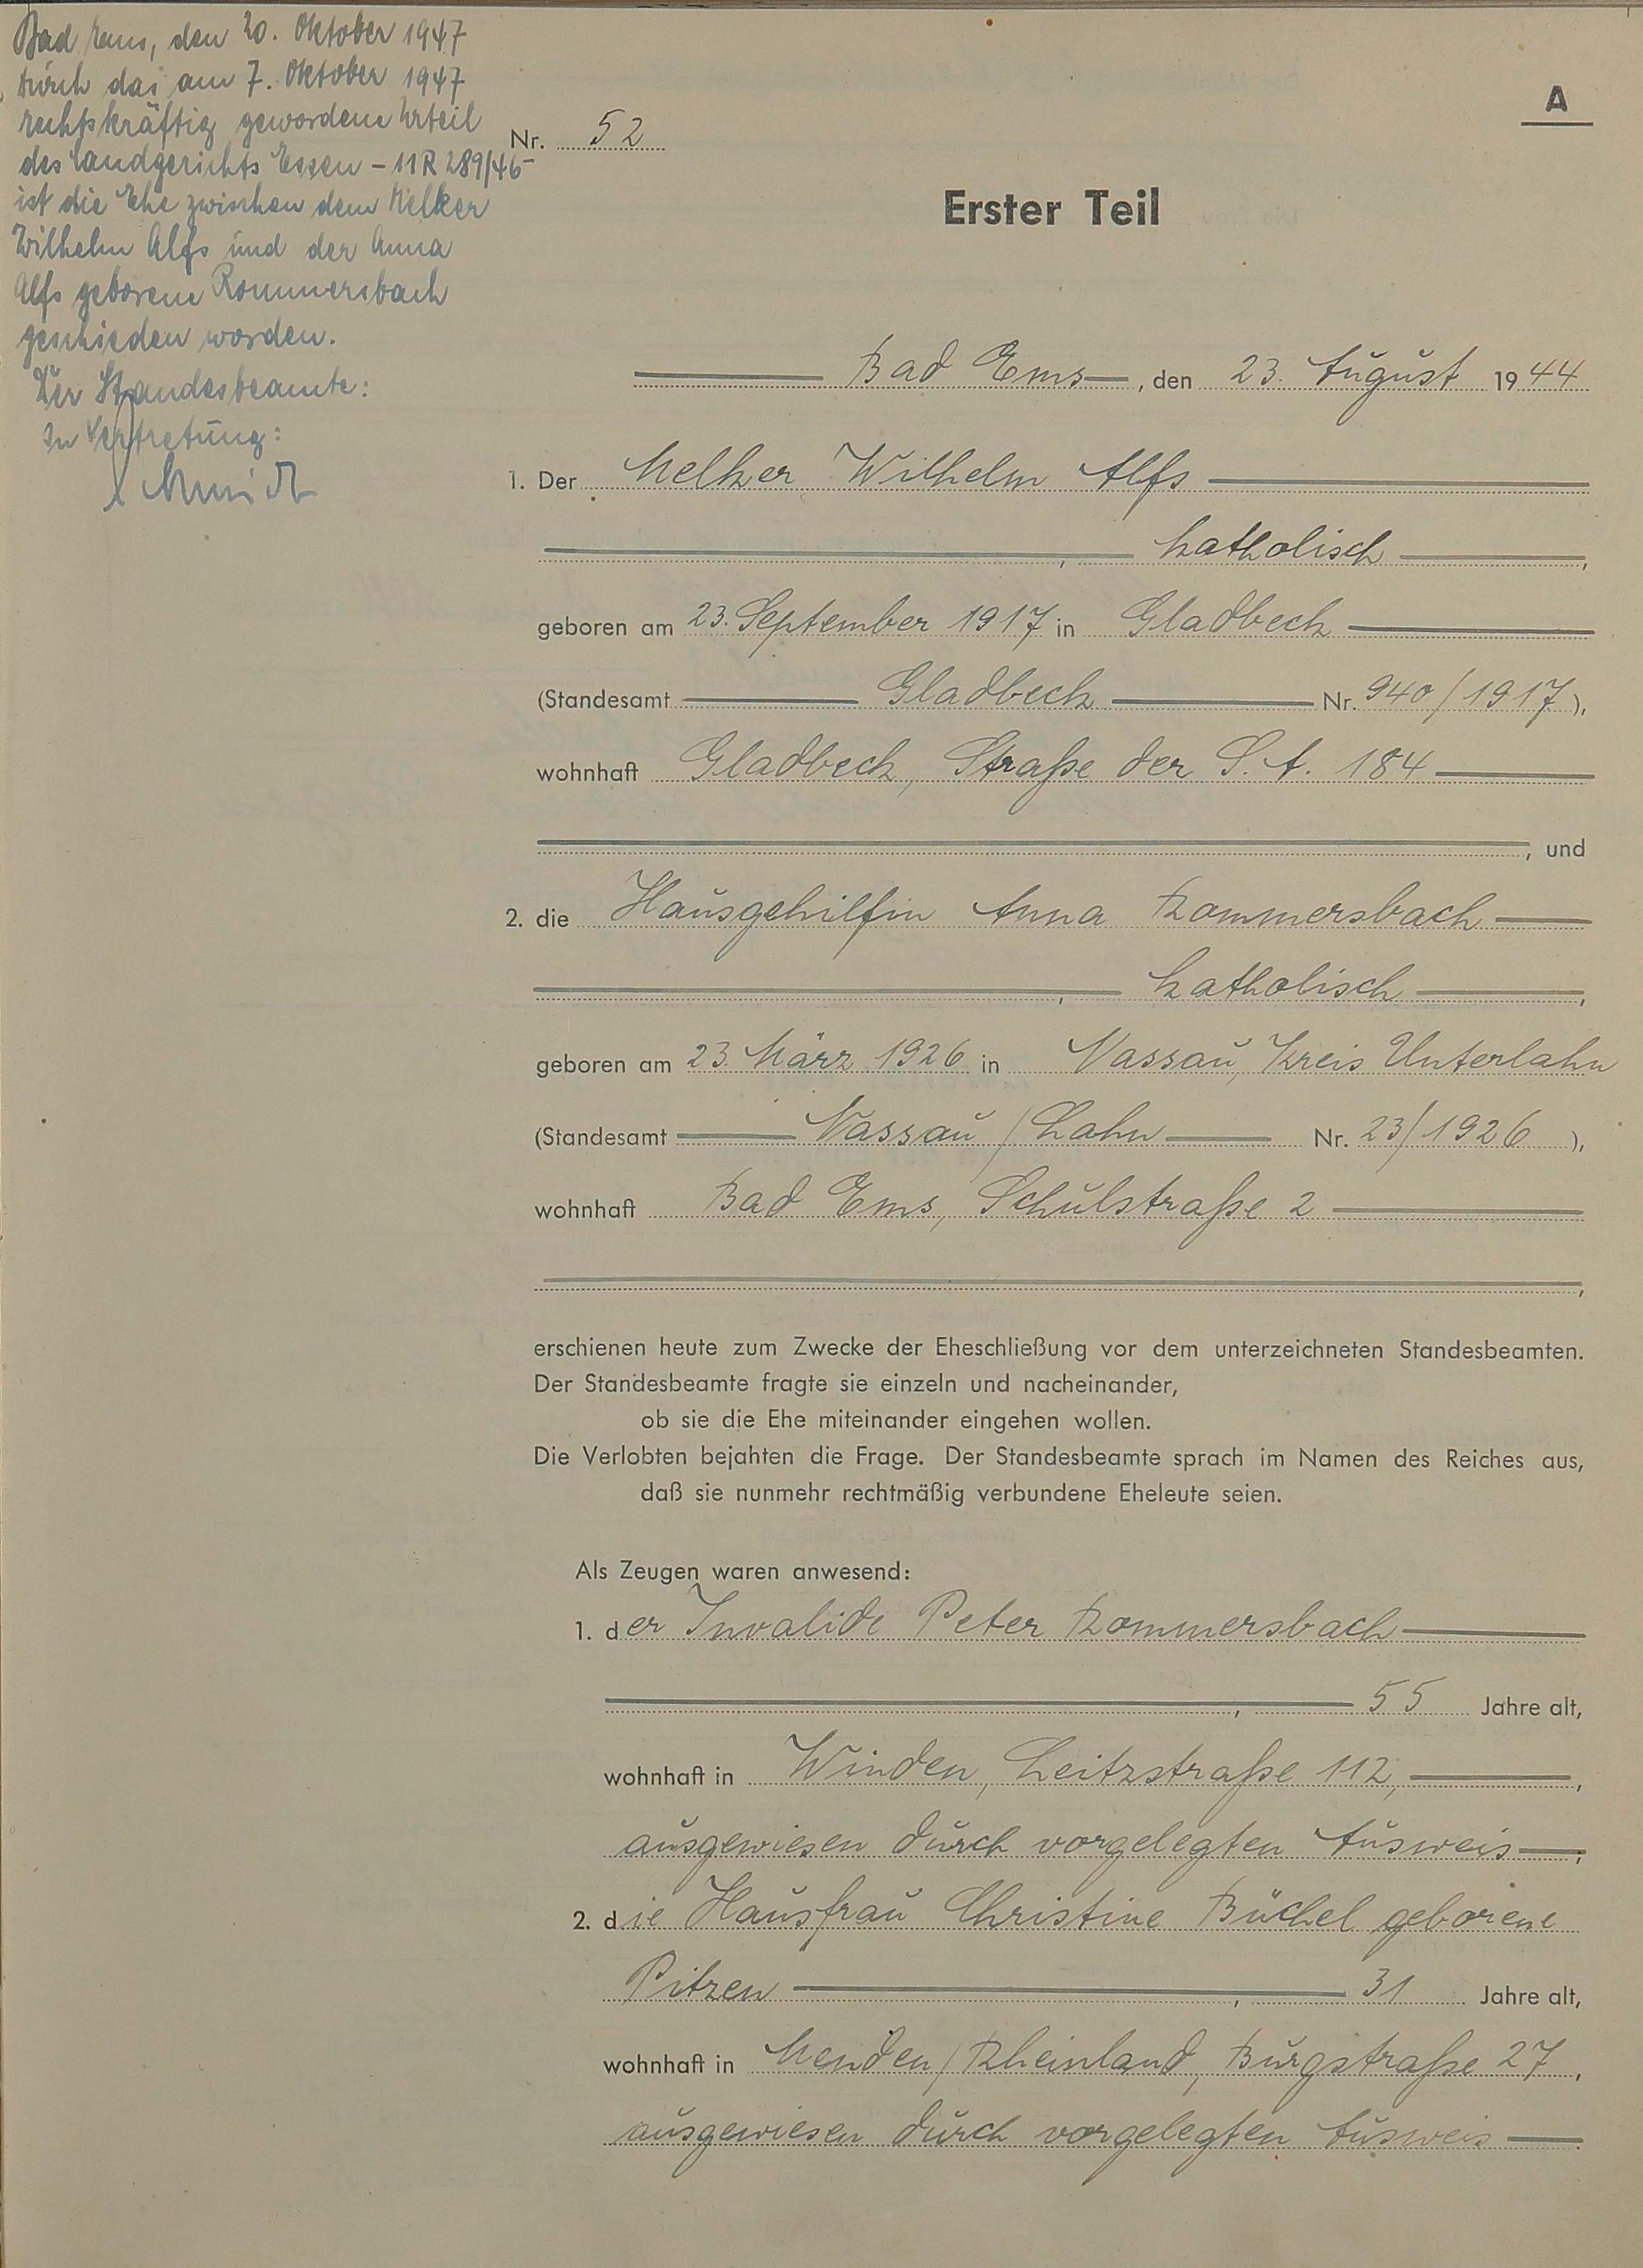 Bad Ems, den 20. Oktober 1947
Durch das am 7. Oktober 1947
rechtskräftig gewordene Urteil
des Landgerichts Essen – 11 R 289/46 –
ist die Ehe zwischen dem Melker
Wilhelm Alfs und der Anna
Alfs geborene Rommersbach
geschieden worden.
Der Standesbeamte:
In Vertretung:
A
Nr. 52
Erster Teil
Bad Ems, den 23. August 1944
1. Der Melker Wilhelm Alfs
, katholisch,
geboren am 23. September 1917 in Gladbeck
(Standesamt Gladbeck Nr. 940/1917),
wohnhaft Gladbeck, Straße der S.A. 184
, und
2. die Hausgehilfin Anna Rommersbach
, katholisch,
geboren am 23. März 1926 in Nassau, Kreis Unterlahn
(Standesamt Nassau/Lahn Nr. 23/1926),
wohnhaft Bad Ems, Schulstraße 2
,
erschienen heute zum Zwecke der Eheschließung vor dem unterzeichneten Standesbeamten.
Der Standesbeamte fragte sie einzeln und nacheinander,
ob sie die Ehe miteinander eingehen wollen.
Die Verlobten bejahten die Frage. Der Standesbeamte sprach im Namen des Reiches aus,
daß sie nunmehr rechtmäßig verbundene Eheleute seien.
Als Zeugen waren anwesend:
1. der Invalide Peter Rommersbach
, 55 Jahre alt,
wohnhaft in Winden, Leitzstraße 112,
ausgewiesen durch vorgelegten Ausweis;
2. die Hausfrau Christine Büchel geborene
Pitzen, 31 Jahre alt,
wohnhaft in Menden/Rheinland, Burgstraße 27,
ausgewiesen durch vorgelegten Ausweis